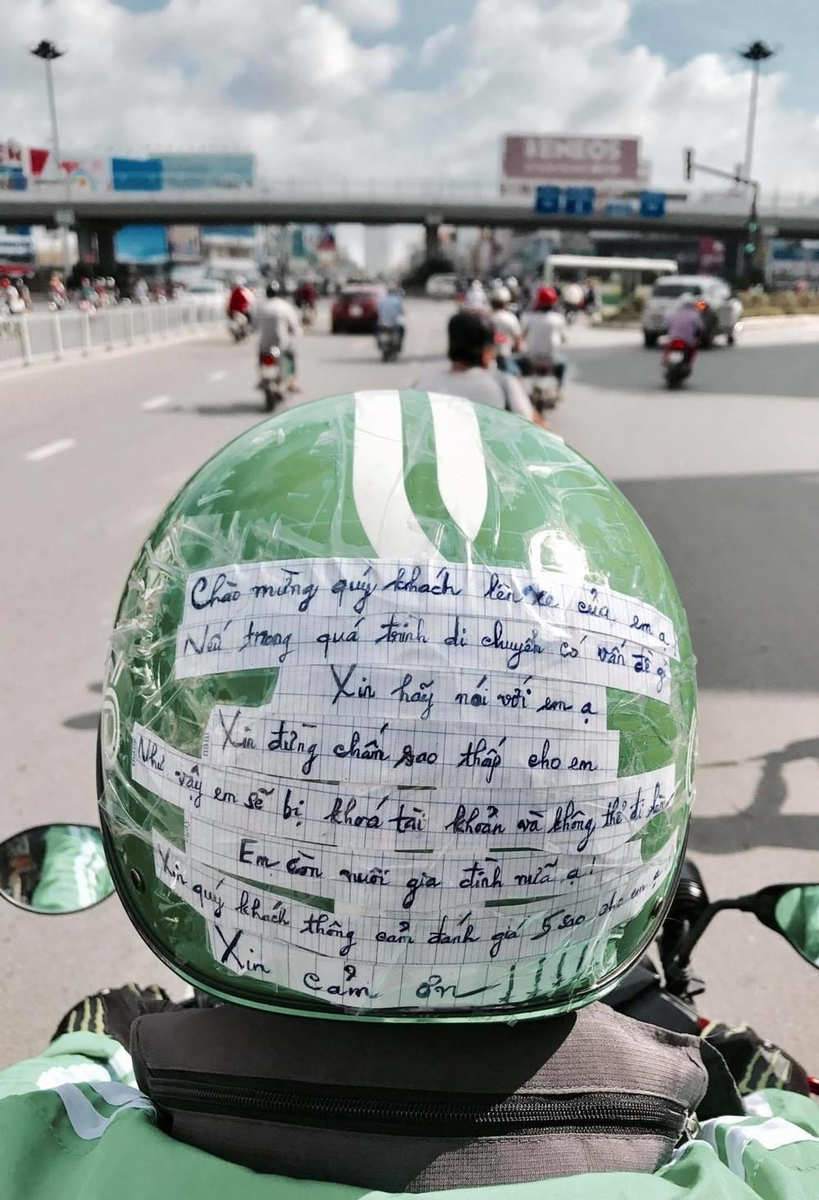 GENEOS
Chào mừng quý khách lên xe của em ạ
Nếu trong quá trình di chuyển có vấn đề gì
Xin hãy nói với em ạ
Xin đừng chấm sao thấp cho em
Như vậy em sẽ bị khoá tài khoản và không thể đi làm
Em còn nuôi gia đình nữa ạ!
Xin quý khách thông cảm đánh giá 5 sao cho em ạ
Xin cảm ơn !!!!!